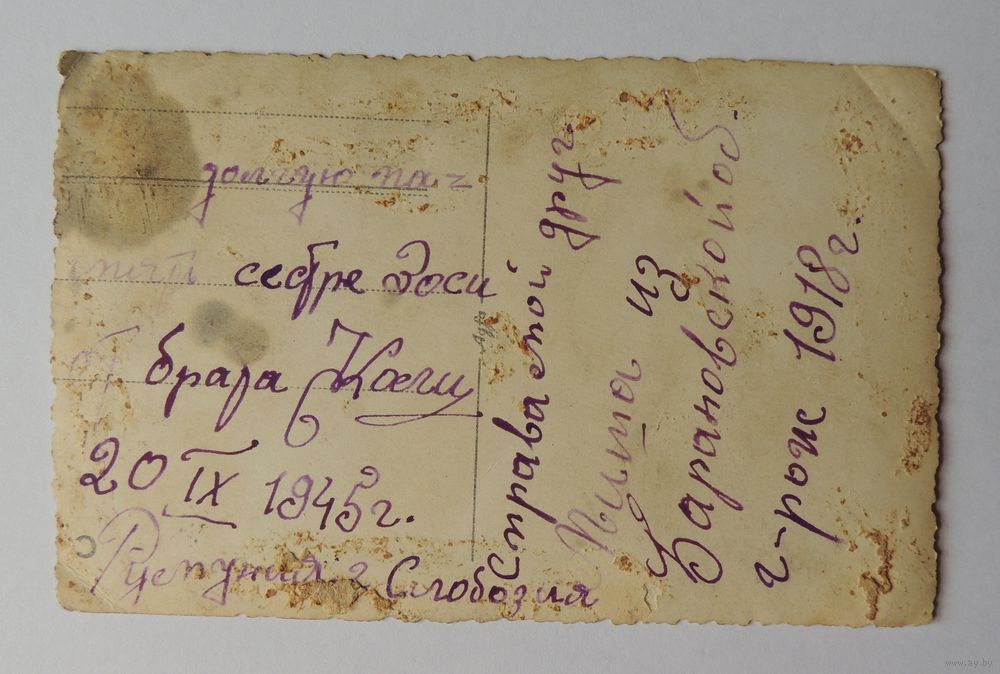 долгую па=
мяти сестре Доси
от брата Кости
20 IX 1945 г.
г Слобозия
Справа мой друг
Миша из
Барановской об.
г-рож 1918 г.
Agfa
www.ay.by